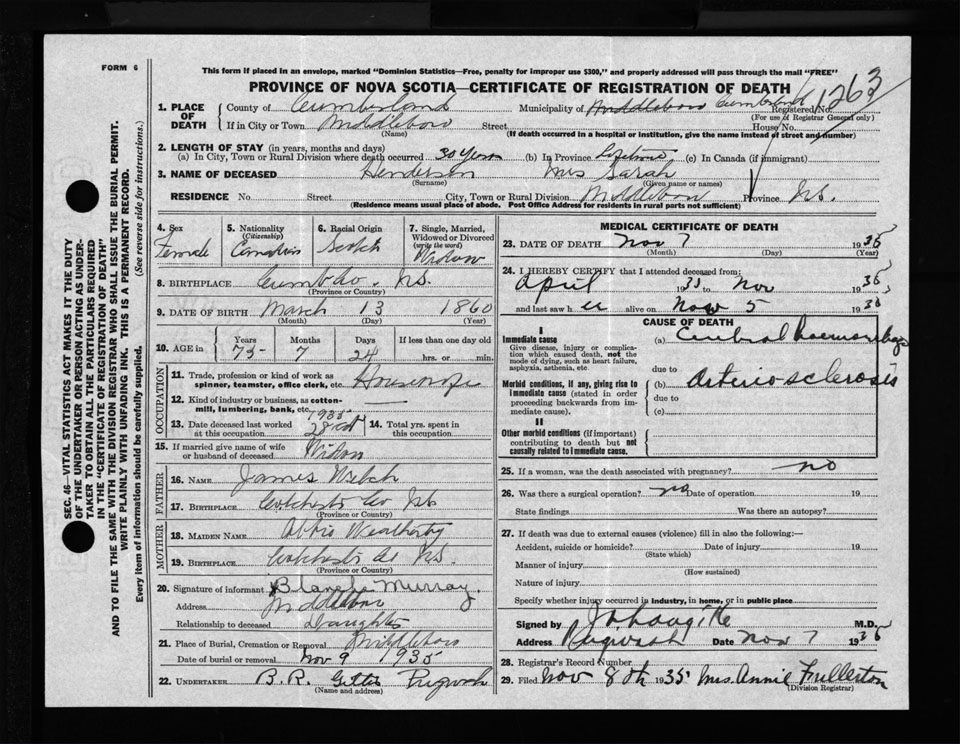 FORM 6
This form if placed in an envelope, marked "Dominion Statistics—Free, penalty for improper use $300," and properly addressed will pass through the mail "FREE"
PROVINCE OF NOVA SCOTIA—CERTIFICATE OF REGISTRATION OF DEATH
1263
1. PLACE OF DEATH
County of Cumberland Municipality of Middleboro Cumberland Registered No.
(For use of Registrar General only)
If in City or Town Middleboro Street House No.
(Name) (If death occurred in a hospital or institution, give the name instead of street and number)
2. LENGTH OF STAY (in years, months and days)
(a) In City, Town or Rural Division where death occurred 30 years (b) In Province Lifetime (c) In Canada (if immigrant)
3. NAME OF DECEASED Henderson Mrs Sarah
(Surname) (Given name or names)
RESIDENCE No. Street City, Town or Rural Division Middleboro Province N.S.
(Residence means usual place of abode. Post Office Address for residents in rural parts not sufficient)
4. Sex Female
5. Nationality (Citizenship) Canadian
6. Racial Origin Scotch
7. Single, Married, Widowed or Divorced (write the word) Widow
8. BIRTHPLACE Cumb Co. N.S.
(Province or Country)
9. DATE OF BIRTH March 13 1860
(Month) (Day) (Year)
10. AGE in Years Months Days If less than one day old
75 7 24 hrs. or min.
OCCUPATION
11. Trade, profession or kind of work as spinner, teamster, office clerk, etc. Housewife
12. Kind of industry or business, as cotton-mill, lumbering, bank, etc.
13. Date deceased last worked at this occupation 1935 28 Oct
14. Total yrs. spent in this occupation
15. If married give name of wife or husband of deceased Widow
FATHER
16. NAME James Welch
17. BIRTHPLACE Colchester Co NS
(Province or Country)
MOTHER
18. MAIDEN NAME Weatherby
19. BIRTHPLACE Colchester Co N.S.
(Province or Country)
20. Signature of informant Blanch Murray.
Address Middleboro
Relationship to deceased Daughter
21. Place of Burial, Cremation or Removal Middleboro
Date of burial or removal Nov 9 1935
22. UNDERTAKER B.R. Pugwash
(Name and address)
MEDICAL CERTIFICATE OF DEATH
23. DATE OF DEATH Nov 7 1935
(Month) (Day) (Year)
24. I HEREBY CERTIFY that I attended deceased from:
April 1935 to Nov 1935
and last saw h er alive on Nov 5 1935
CAUSE OF DEATH
I
Immediate cause
Give disease, injury or complication which caused death, not the mode of dying, such as heart failure, asphyxia, asthenia, etc
(a) Cerebral haemorrhage
due to
Morbid conditions, if any, giving rise to immediate cause (stated in order proceeding backwards from immediate cause).
(b) Arterio-sclerosis
due to
(c)
II
Other morbid conditions (if important) contributing to death but not causally related to immediate cause.
25. If a woman, was the death associated with pregnancy? no
26. Was there a surgical operation? no Date of operation 19
State findings Was there an autopsy?
27. If death was due to external causes (violence) fill in also the following:—
Accident, suicide or homicide? Date of injury 19
(State which)
Manner of injury
(How sustained)
Nature of injury
Specify whether injury occurred in industry, in home, or in public place
Signed by M.D.
Address Pugwash Date Nov 7 1935
28. Registrar's Record Number
29. Filed Nov 8th 1935 Mrs. Annie Fullerton
(Division Registrar)
SEC. 46—VITAL STATISTICS ACT MAKES IT THE DUTY
OF THE UNDERTAKER OR PERSON ACTING AS UNDER-
TAKER TO OBTAIN ALL THE PARTICULARS REQUIRED
IN THE "CERTIFICATE OF REGISTRATION OF DEATH"
AND TO FILE THE SAME WITH THE DIVISION REGISTRAR WHO SHALL ISSUE THE BURIAL PERMIT.
WRITE PLAINLY WITH UNFADING INK. THIS IS A PERMANENT RECORD.
Every item of information should be carefully supplied. (See reverse side for instructions.)